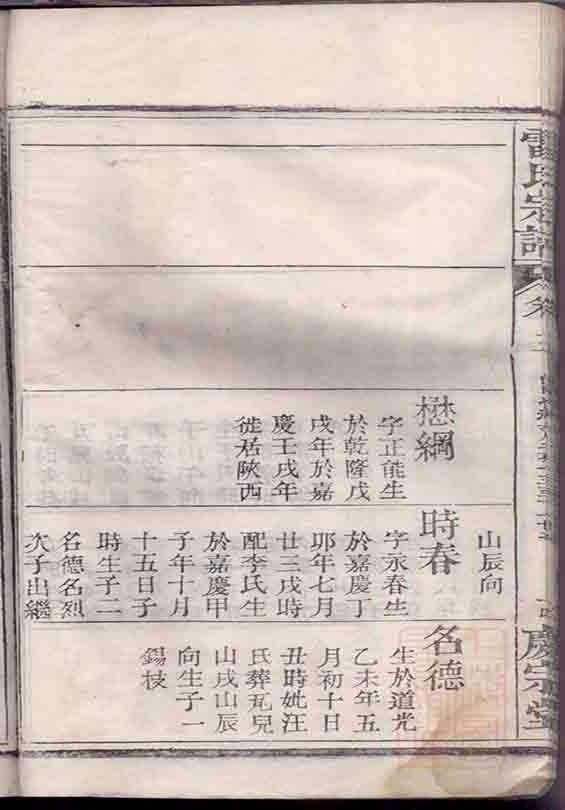 雷氏宗譜
卷二
慶宗堂
懋綱
字正能生
於乾隆戊
戌年於嘉
慶壬戌年
徙居陝西
山辰向
時春
字永春生
於嘉慶丁
卯年七月
廿三戌時
配李氏生
於嘉慶甲
子年十月
十五日子
時生子二
名德名烈
次子出繼
名德
生於道光
乙未年五
月初十日
丑時妣汪
氏葬瓦兒
山戌山辰
向生子一
錫枝